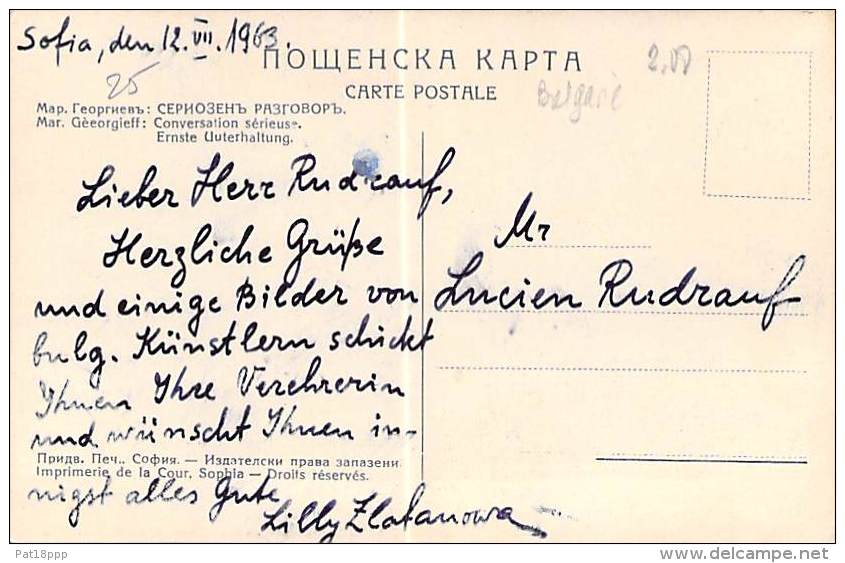 Sofia, den 12.VII.1963.
ПОЩЕНСКА КАРТА
2,00
25
CARTE POSTALE
Bulgarie
Мар. Георгиевъ: СЕРИОЗЕНЪ РАЗГОВОРЪ.
Mar. Gèeorgieff: Conversation sérieuse.
Ernste Uuterhaltung.
Lieber Herr Rudrauf,
Herzliche Grüße
und einige Bilder von
bulg. Künstlern schickt
Ihnen Ihre Verehrerin
und wünscht Ihnen in-
nigst alles Gute
Lilly Zlatanowa
Mr
Lucien Rudrauf
Придв. Печ.. София. — Издателски права запазени.
Imprimerie de la Cour, Sophia — Droits réservés.
Pat18ppp
delcampe.net